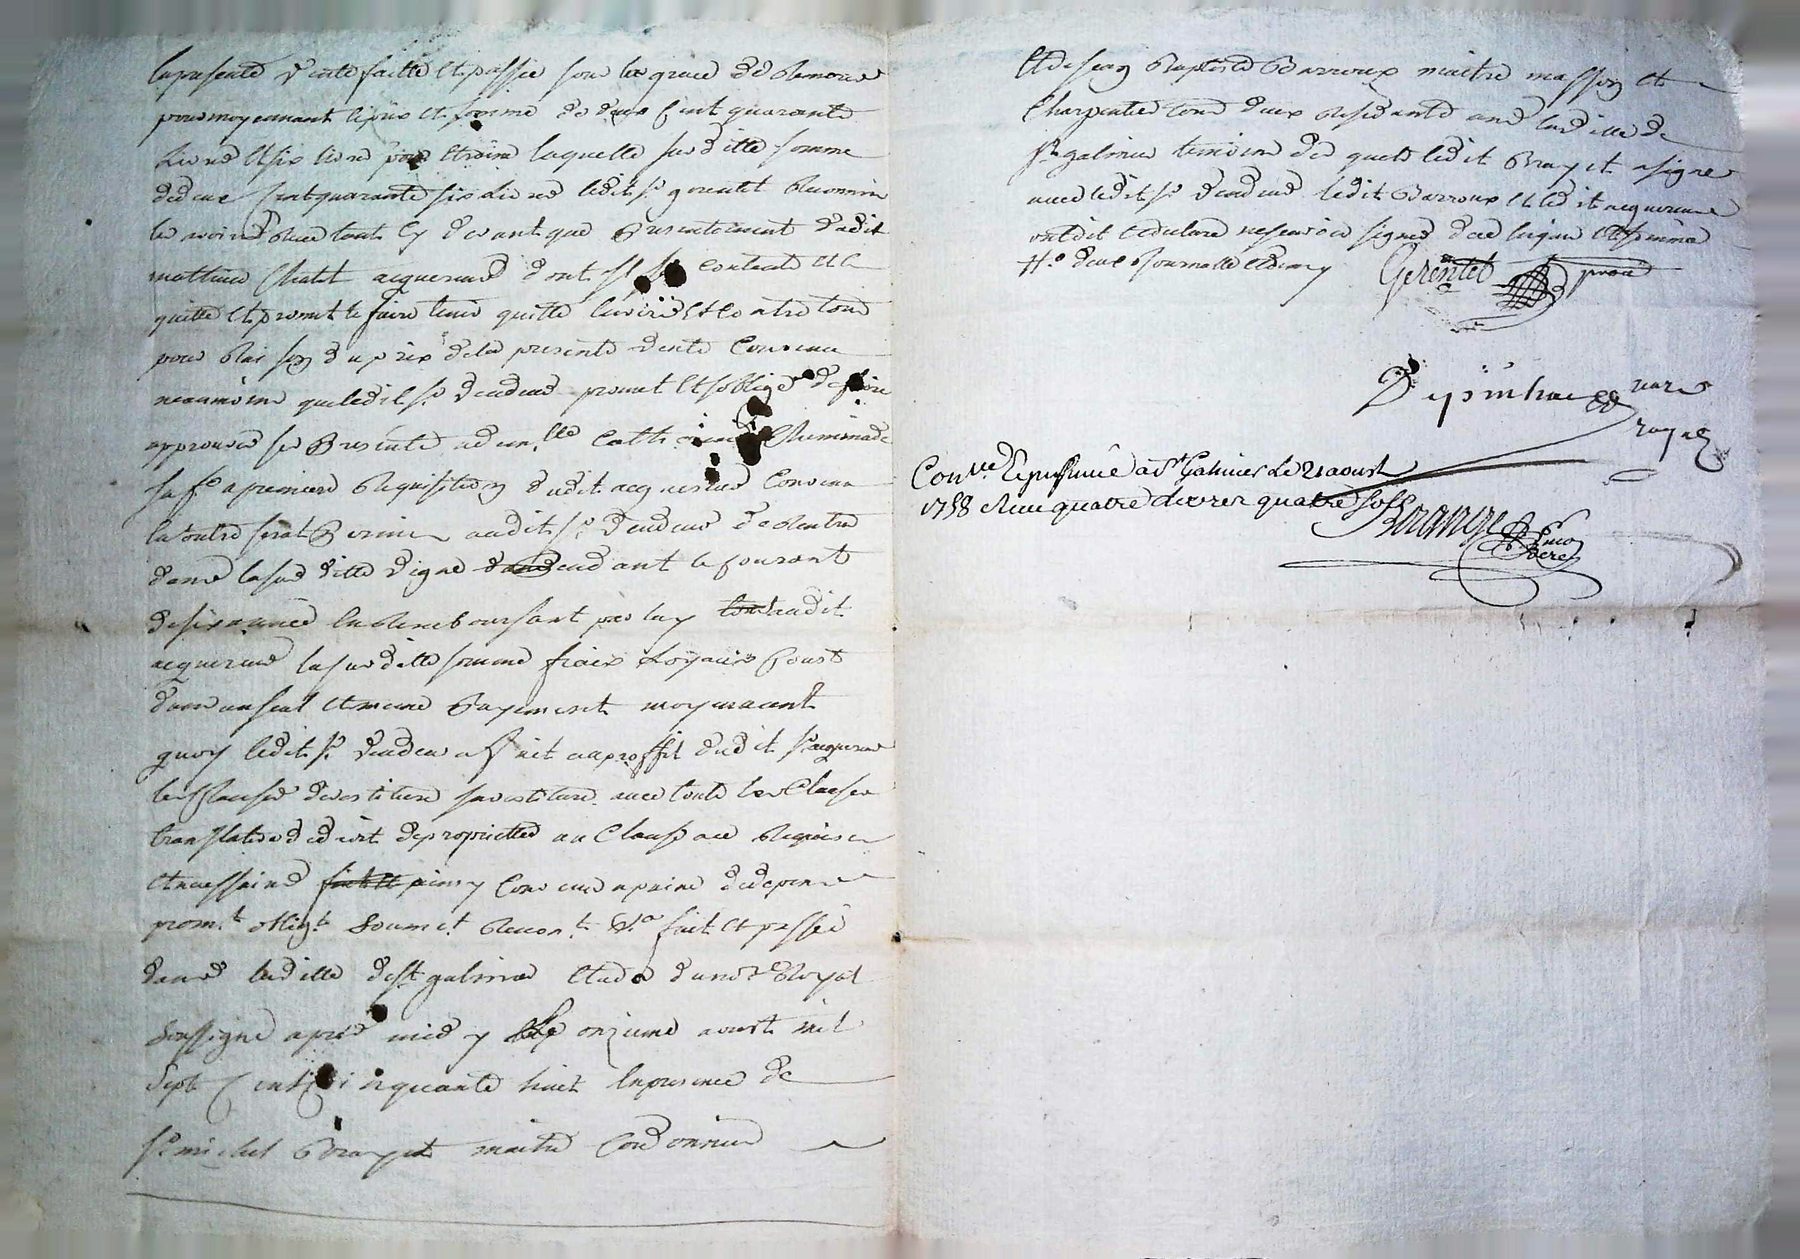 la presente vente faitte et passée sous la grace de Remerer
pour moyennant le prix et somme de deux cent quarante
Livres et six livres pour laquelle susditte somme
de deux cent quarante six Livres ledit sr gerentet Reconnu
les avoir Receu tout cy devant que presentement dudit
mathieu Chatet acquereur dont il se contente et
quitte et promet le faire tenir quitte envers et contre tous
pour Raison du prix de la presente vente Convenu
neanmoins que ledit sr vendeur promet et s'oblige de faire
approuver ses presentes a dem.lle Catherine Cheminade
sa fe a premiere Requisition dudit acquereur Convenu
en outre serat permis audit sr vendeur de Rentrer
dans la susditte vigne pendant le courant
de six année en Remboursant par luy audit
acquereur la susditte somme fraix Loyaux Coust
dans un seul et meme payement moyennant
quoy ledit sr vendeur a fait au proffit dudit sr acquereur
les Clauses devestiture investiture avec toute les Clauses
translative de droit de proprietté au Clauses Requises
et necessaires ainsy Convenu a peine de depens
prom.t oblig.t Soumet. Renon.t &.a fait et passée
dans laditte de st galmier Etude du not.re Royal
Soussigné aprés midy Le onzieme aoust mil
Sept Cent cinquante huit En presence de
sr michel Brayet maitre Cordonnier
Et de jean Baptiste Barroux maitre masson et
Charpentier tous deux Residants en laditte de
st galmier temoins de que ledit Brayet a signé
avec ledit sr vendeur ledit Barroux et ledit acquereur
ont dit et declaré ne scavoir signer de ce enquis et sommés
Gerentet
nore
royal
Con.lle Et Insinué a St Galmier Le 21 aoust
1758 Receu quatre Livres quatre sols